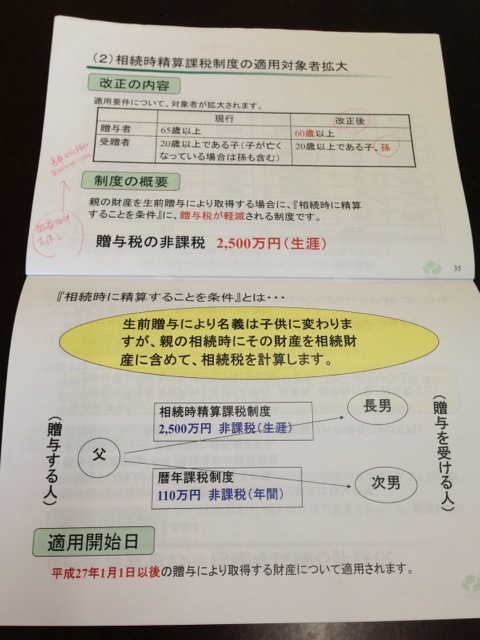 (2)相続時精算課税制度の適用対象者拡大
改正の内容
適用要件について、対象者が拡大されます。
現行 改正後
贈与者 65歳以上 60歳以上
受贈者 20歳以上である子(子が亡く 20歳以上である子、孫
なっている場合は孫も含む)
制度の概要
親の財産を生前贈与により取得する場合に、『相続時に精算
することを条件』に、贈与税が軽減される制度です。
贈与税の非課税 2,500万円(生涯)
35
『相続時に精算することを条件』とは・・・
生前贈与により名義は子供に変わりま
すが、親の相続時にその財産を相続財
産に含めて、相続税を計算します。
(贈与する人)
父
相続時精算課税制度
2,500万円 非課税(生涯)
暦年課税制度
110万円 非課税(年間)
長男
次男
(贈与を受ける人)
適用開始日
平成27年1月1日以後の贈与により取得する財産について適用されます。